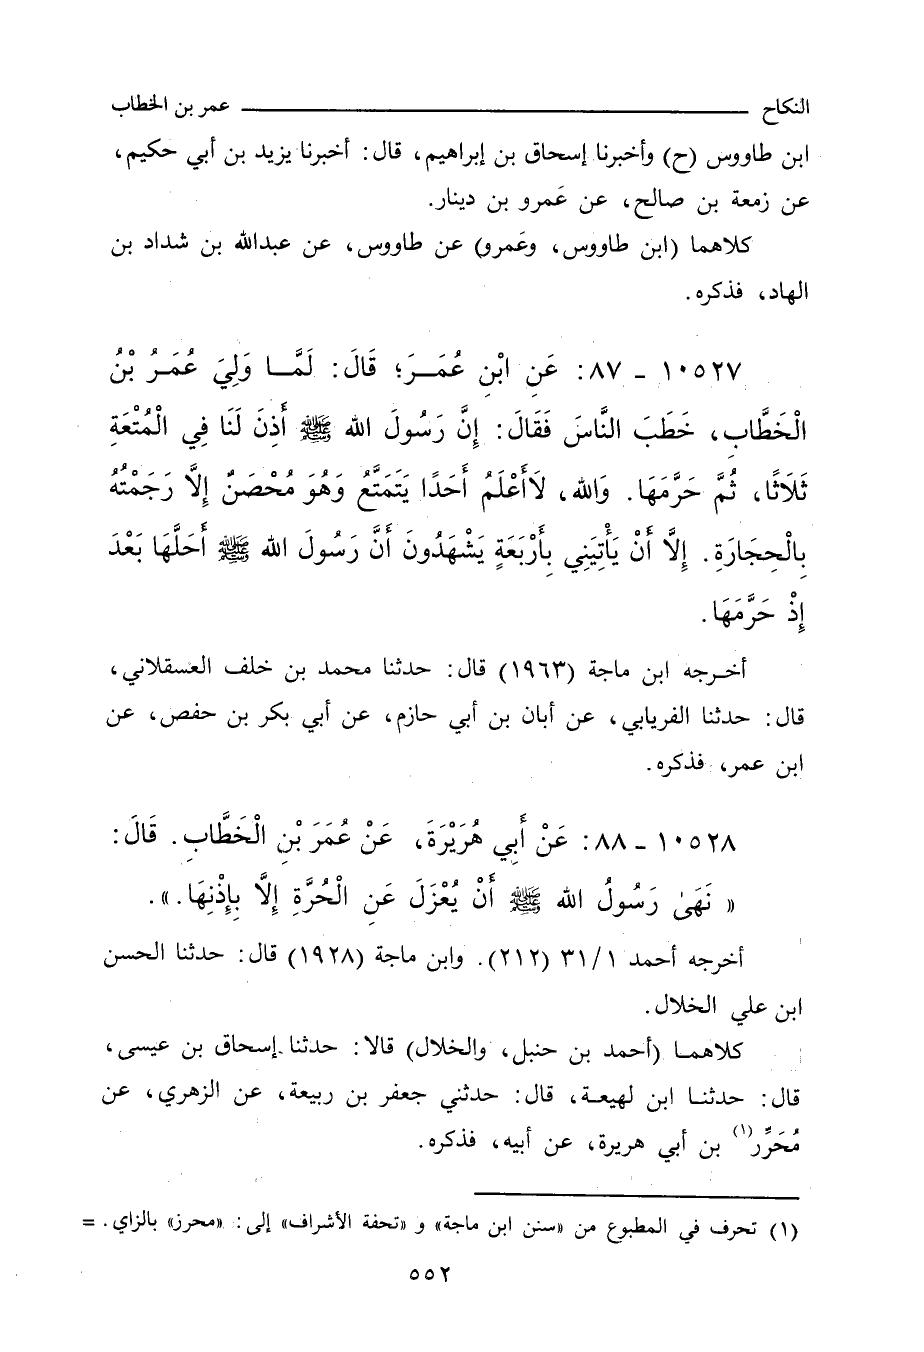 النكاح ــــــــــــــــــــ عمر بن الخطاب
ابن طاووس (ح) وأخبرنا إسحاق بن إبراهيم، قال: أخبرنا يزيد بن أبي حكيم،
عن زمعة بن صالح، عن عَمرو بن دينار.
كلاهما (ابن طاووس، وعَمرو) عن طاووس، عن عبدالله بن شداد بن
الهاد، فذكره.
١٠٥٢٧ - ٨٧: عَنِ ابْنِ عُمَـرَ؛ قَالَ: لَمَّـا وَلِيَ عُمَـرُ بْنُ
الْخَطَّابِ، خَطَبَ النَّاسَ فَقَالَ: إِنَّ رَسُولَ الله ﷺ أَذِنَ لَنَا فِي الْمُتْعَةِ
ثَلَاثًا، ثُمَّ حَرَّمَهَا. وَالله، لَاأَعْلَمُ أَحَدًا يَتَمَتَّعُ وَهُوَ مُحْصَنٌ إِلَّا رَجَمْتُهُ
بِالْحِجَارَةِ. إِلَّا أَنْ يَأْتِيَنِي بِأَرْبَعَةٍ يَشْهَدُونَ أَنَّ رَسُولَ الله ﷺ أَحَلَّهَا بَعْدَ
إِذْ حَرَّمَهَا.
أخـرجه ابن ماجة (١٩٦٣) قال: حدثنا محمد بن خلف العسقلاني،
قال: حدثنا الفريابي، عن أبان بن أبي حازم، عن أبي بكر بن حفص، عن
ابن عمر، فذكره.
١٠٥٢٨ - ٨٨: عَنْ أَبِي هُرَيْرَةَ، عَنْ عُمَرَ بْنِ الْخَطَّابِ. قَالَ:
« نَهَىٰ رَسُولُ الله ﷺ أَنْ يُعْزَلَ عَنِ الْحُرَّةِ إِلَّا بِإِذْنِهَا.».
أخرجه أحمد ٣١/١ (٢١٢). وابن ماجة (١٩٢٨) قال: حدثنا الحسن
ابن علي الخلال.
كلاهمـا (أحمد بن حنبل، والخلال) قالا: حدثنا إسحاق بن عيسى،
قال: حدثنـا ابن لهيعـة، قال: حدثني جعفر بن ربيعة، عن الزهري، عن
مُحَرَّر(١) بن أبي هريرة، عن أبيه، فذكره.
(١) تحرف في المطبوع من «سنن ابن ماجة» و «تحفة الأشراف» إلى: «محرز» بالزاي. =
٥٥٢